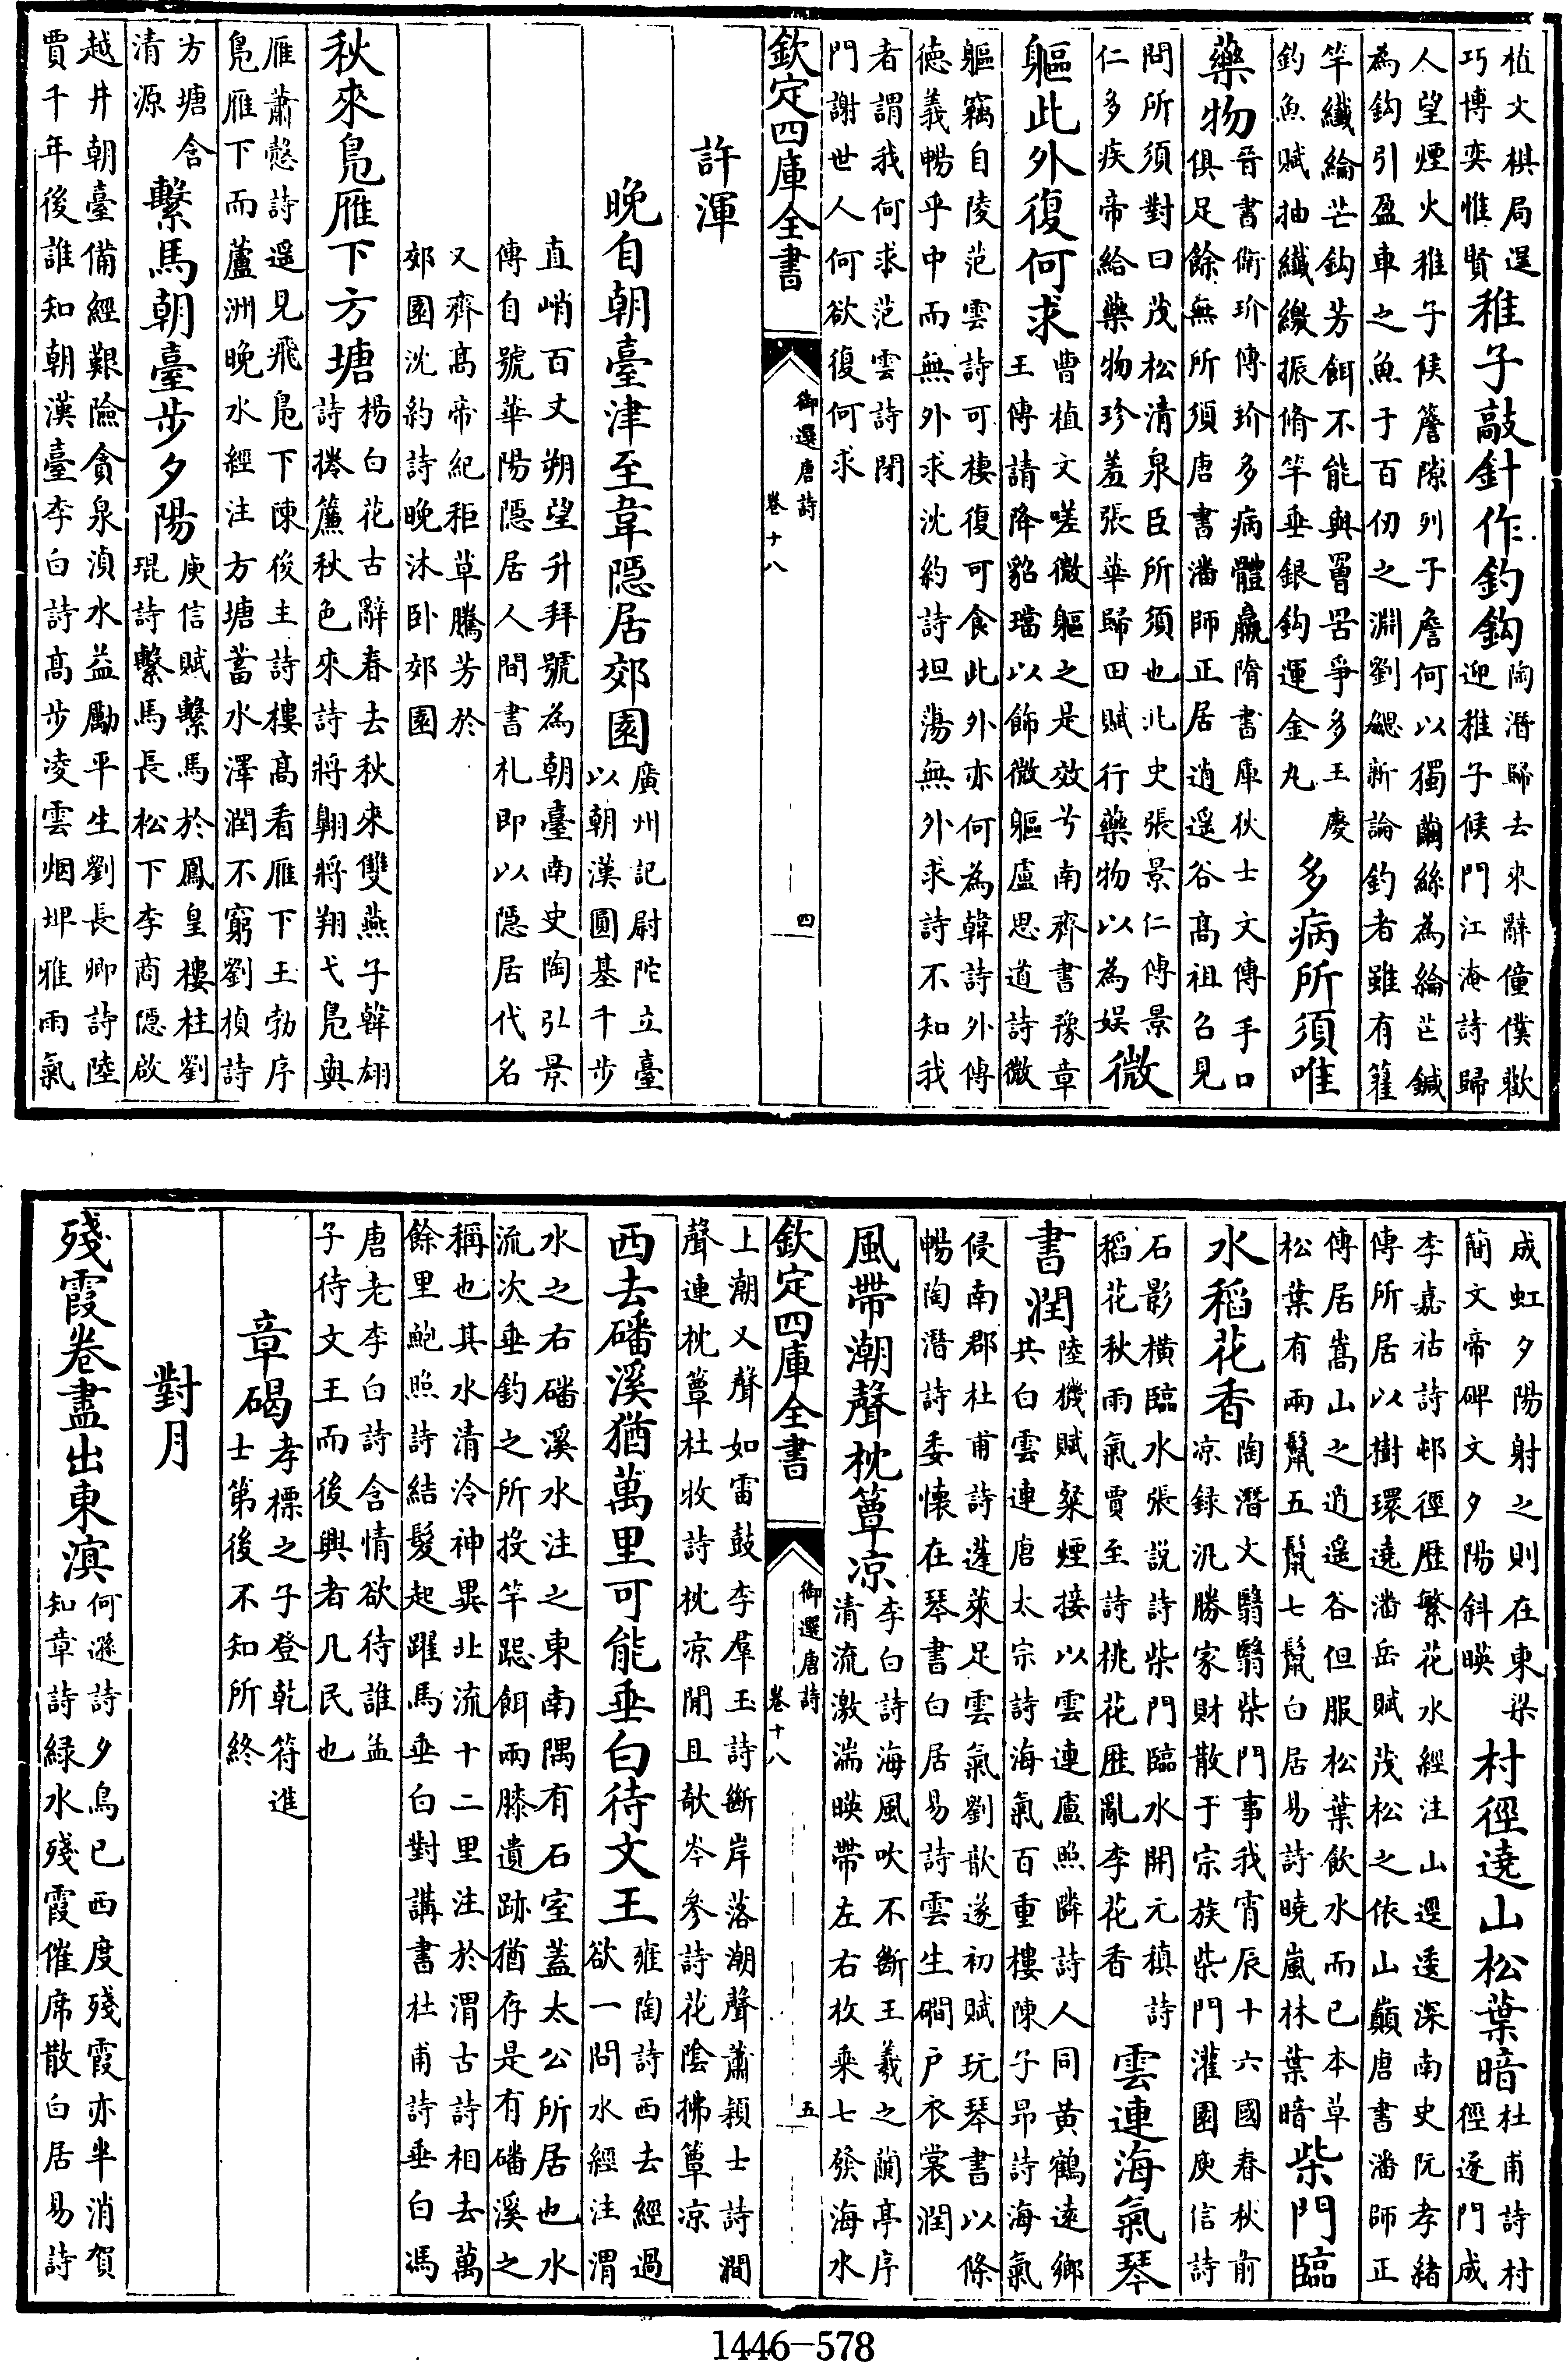 植文棋局逞
巧博奕惟賢
稚子敲針作釣鈎
陶潛歸去來辭僮僕歡
迎稚子候門江淹詩歸
人望煙火稚子候簷隙列子詹何以獨繭絲為綸芒鍼
為鈎引盈車之魚于百仞之淵劉勰新論釣者雖有籊
竿纖綸芒鈎芳餌不能與罾罟爭多王慶
釣魚賦抽纖繳振脩竿垂銀鈎運金丸
多病所須唯
藥物
晉書衛玠傳玠多病體羸隋書庫狄士文傳手口
俱足餘無所須唐書潘師正居逍遥谷高祖召見
問所須對曰茂松清泉臣所須也北史張景仁傳景
仁多疾帝給藥物珍羞張華歸田賦行藥物以為娛
微
軀此外復何求
曹植文嗟微軀之是效兮南齊書豫章
王傳請降貂璫以飾微軀盧思道詩微
軀竊自陵范雲詩可棲復可食此外亦何為韓詩外傳
德義暢乎中而無外求沈約詩坦蕩無外求詩不知我
者謂我何求范雲詩閉
門謝世人何欲復何求
欽定四庫全書
御選唐詩
卷十八
四
許渾
晚自朝臺津至韋隱居郊園
廣州記尉陀立臺
以朝漢圓基千步
直峭百丈朔望升拜號為朝臺南史陶弘景
傳自號華陽隱居人間書札即以隱居代名
又齊高帝紀秬草騰芳於
郊園沈約詩晚沐臥郊園
秋來鳧雁下方塘
楊白花古辭春去秋來雙燕子韓翃
詩捲簾秋色來詩將翺將翔弋鳧與
雁蕭慤詩遥見飛鳧下陳後主詩樓高看雁下王勃序
鳧雁下而蘆洲晚水經注方塘蓄水澤潤不窮劉楨詩
方塘含
清源
繫馬朝臺步夕陽
庾信賦繫馬於鳳皇樓柱劉
琨詩繫馬長松下李商隱啟
越井朝臺備經艱險貪泉湞水益勵平生劉長卿詩陸
賈千年後誰知朝漢臺李白詩高步凌雲烟埤雅雨氣
成虹夕陽射之則在東梁
簡文帝碑文夕陽斜暎
村徑遶山松葉暗
杜甫詩村
徑逐門成
李嘉祐詩邨徑歷繁花水經注山逕逶深南史阮孝緒
傳所居以樹環遶潘岳賦茂松之依山巔唐書潘師正
傳居嵩山之逍遥谷但服松葉飲水而已本草
松葉有兩鬣五鬣七鬣白居易詩曉嵐林葉暗
柴門臨
水稻花香
陶潛文翳翳柴門事我宵辰十六國春秋前
凉録氾勝家財散于宗族柴門灌園庾信詩
石影橫臨水張説詩柴門臨水開元稹詩
稻花秋雨氣賈至詩桃花歷亂李花香
雲連海氣琴
書潤
陸機賦粲煙接以雲連盧照鄰詩人同黃鶴遠鄉
共白雲連唐太宗詩海氣百重樓陳子昂詩海氣
侵南郡杜甫詩蓬萊足雲氣劉歆遂初賦玩琴書以條
暢陶潛詩委懷在琴書白居易詩雲生磵戶衣裳潤
風帶潮聲枕簟凉
李白詩海風吹不斷王羲之蘭亭序
清流激湍暎帶左右枚乘七發海水
上潮又聲如雷鼓李羣玉詩斷岸落潮聲蕭穎士詩澗
聲連枕簟杜牧詩枕凉閒且欹岑參詩花陰拂簟凉
欽定四庫全書
御選唐詩
卷十八
五
西去磻溪猶萬里可能垂白待文王
雍陶詩西去經過
欲一問水經注渭
水之右磻溪水注之東南隅有石室蓋太公所居也水
流次垂釣之所投竿跽餌兩膝遺跡猶存是有磻溪之
稱也其水清泠神異北流十二里注於渭古詩相去萬
餘里鮑照詩結髮起躍馬垂白對講書杜甫詩垂白馮
唐老李白詩含情欲待誰孟
子待文王而後興者凡民也
章碣
孝標之子登乾符進
士第後不知所終
對月
殘霞卷盡出東溟
何遜詩夕鳥已西度殘霞亦半消賀
知章詩緑水殘霞催席散白居易詩
1446-578